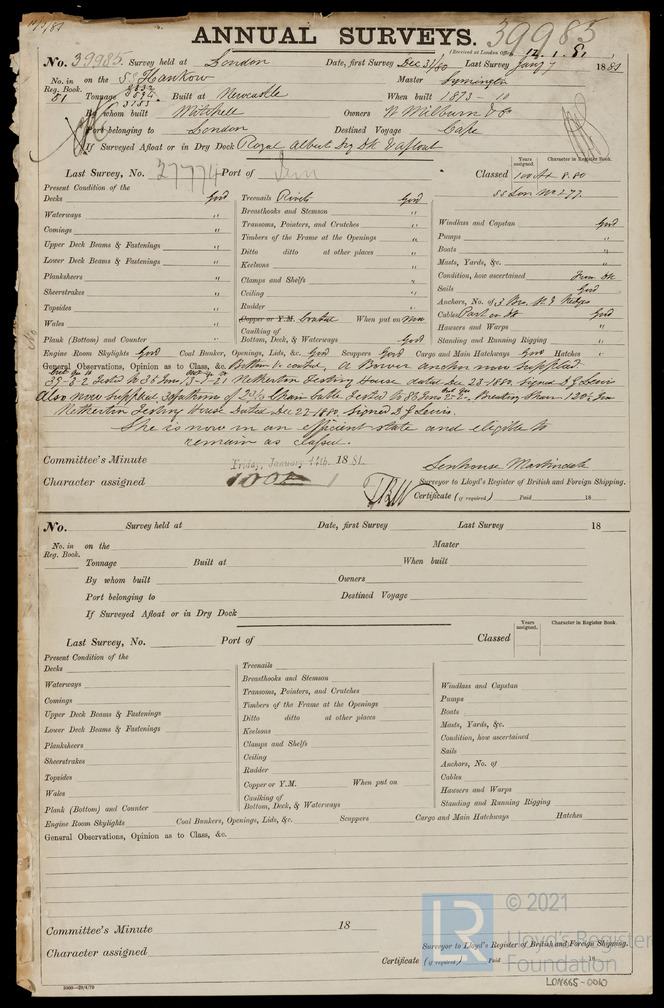 ANNUAL SURVEYS. 39985
(Received at London Office 12.1.81)
No. 39985. Survey held at London Date, first Survey Dec 31/80 Last Survey Jany 7 1881
No. in Reg. Book. 81 on the SS Hankow Master Symington
Tonnage Built at Newcastle When built 1873-10
By whom built Mitchell Owners W Milburn & Co
Port belonging to London Destined Voyage Cape
If Surveyed Afloat or in Dry Dock Royal Albert Dry Dk & afloat
Years assigned. Character in Register Book.
Last Survey, No. 27774 Port of Classed 100A1 8.80
SS Lon No 2-77
Present Condition of the
Decks Good Treenails Rivets Good
Waterways " Breasthooks and Stemson " Windlass and Capstan Good
Comings " Transoms, Pointers, and Crutches " Pumps "
Upper Deck Beams & Fastenings " Timbers of the Frame at the Openings " Boats "
Lower Deck Beams & Fastenings " Ditto ditto at other places " Masts, Yards, &c. "
Planksheers " Keelsons " Condition, how ascertained From Dk
Sheerstrakes " Clamps and Shelfs " Sails Good
Topsides " Ceiling " Anchors, No. of
Wales " Rudder " Cables Good
Copper or Y.M. Coated When put on Now Hawsers and Warps "
Plank (Bottom) and Counter " Caulking of Bottom, Deck, & Waterways Good Standing and Running Rigging "
Engine Room Skylights Good Coal Bunker, Openings, Lids, &c. Good Scuppers Good Cargo and Main Hatchways Good Hatches "
General Observations, Opinion as to Class, &c. Bottom coated, a Bower anchor now supplied
Netherton Testing House dated Dec 23-1880. Signed D G Lewis
Also now supplied, 30 fathoms of Chain Cable Tested to Breaking Strain
Netherton Testing House Dated Dec 22-1880. Signed D G Lewis.
She is now in an efficient state and eligible to
remain as classed.
Committee's Minute Friday, January 14th. 1881.
Character assigned 100A1
Senhouse Martindale
Surveyor to Lloyd's Register of British and Foreign Shipping.
Certificate (if required) Paid 18
No. Survey held at Date, first Survey Last Survey 18
No. in Reg. Book. on the Master
Tonnage Built at When built
By whom built Owners
Port belonging to Destined Voyage
If Surveyed Afloat or in Dry Dock
Years assigned. Character in Register Book.
Last Survey, No. Port of Classed
Present Condition of the
Decks Treenails
Waterways Breasthooks and Stemson Windlass and Capstan
Comings Transoms, Pointers, and Crutches Pumps
Upper Deck Beams & Fastenings Timbers of the Frame at the Openings Boats
Lower Deck Beams & Fastenings Ditto ditto at other places Masts, Yards, &c.
Planksheers Keelsons Condition, how ascertained
Sheerstrakes Clamps and Shelfs Sails
Topsides Ceiling Anchors, No. of
Wales Rudder Cables
Copper or Y.M. When put on Hawsers and Warps
Plank (Bottom) and Counter Caulking of Bottom, Deck, & Waterways Standing and Running Rigging
Engine Room Skylights Coal Bunkers, Openings, Lids, &c. Scuppers Cargo and Main Hatchways Hatches
General Observations, Opinion as to Class, &c.
Committee's Minute 18
Character assigned
Surveyor to Lloyd's Register of British and Foreign Shipping.
Certificate (if required) Paid 18
LR © 2021 Lloyd's Register Foundation
LON665-0010